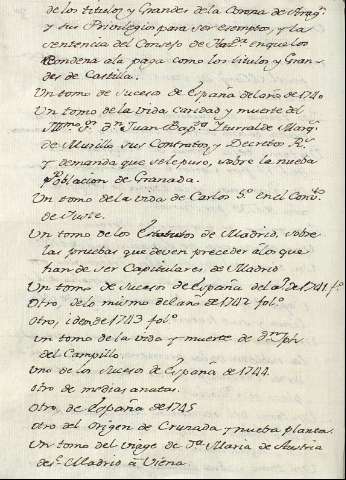 de los titulos y Grandes de la Corona de Arag.ⁿ
y sus Privilegios para ser esemptos, y la
sentencia del Consejo de Haz.da en que los
Condena a la paga como los titulos y Gran-
des de Castilla.
Un tomo de Sucesos de España del año de 1740
Un tomo de la vida caridad y muerte del
Yll.mo S.r d.n Juan Bap.ta Yturralde Marq.s
de Murillo sus Contratos, y Decretos R.s
y demanda que se le puso, sobre la nueba
Poblacion de Granada.
Un tomo de la vida de Carlos 5.º en el Conv.to
de Juste.
Un tomo de los Estatutos de Madrid, sobre
las pruebas que deven preceder á los que
han de ser Capitulares de Madrid
Un tomo de Sucesos de España del a.º de 1741 f.º
Otro, de lo mismo del año de 1742 fol.º
Otro, idem de 1743 fol.º
Un tomo de la vida y muerte de d.n Jph
del Campillo.
Uno de los Sucesos de España de 1744.
Otro de medias anatas.
Otro, de España de 1745
Otro del origen de Cruzada y nueva planta.
Un tomo del viage de D.a Maria de Austria
des.e Madrid á Viena